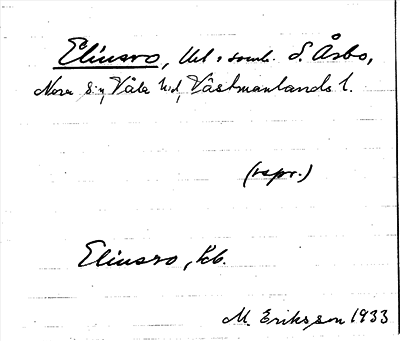 Elinsro, Uel. s. omk. S. Åsbo,
Nora sn, Våla hd, Västmanlands l.
(uspr.)
Elinsro, Kb.
M. Eriksson 1933